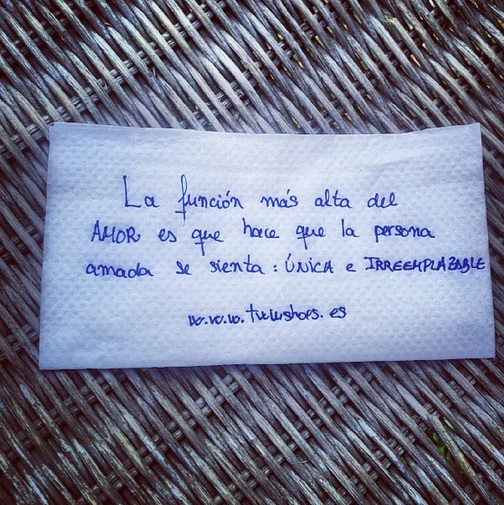 La función más alta del
AMOR es que hace que la persona
amada se sienta: ÚNICA e IRREEMPLAZABLE